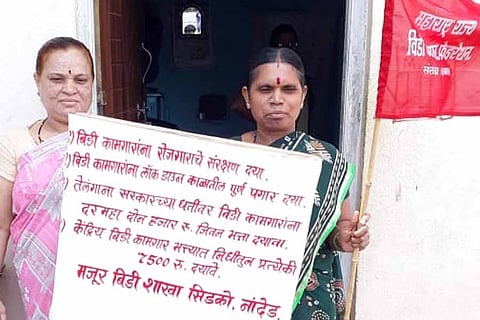 १) बिडी कामगारांना रोजगाराचे संरक्षण दया.
२) बिडी कामगारांना लॉक डाउन काळातील पूर्ण पगार दया.
३) तेलंगाना सरकारच्या धर्तीवर बिडी कामगारांना
दरमहा दोन हजार रु. जिवन भत्ता दयावा.
केंद्रिय बिडी कामगार भत्त्यात निधीतुन प्रत्येकी
7500 रु. दयावे.
मजूर बिडी शाखा सिडको, नांदेड.
महाराष्ट्र राज्य
विडी फेडरेशन